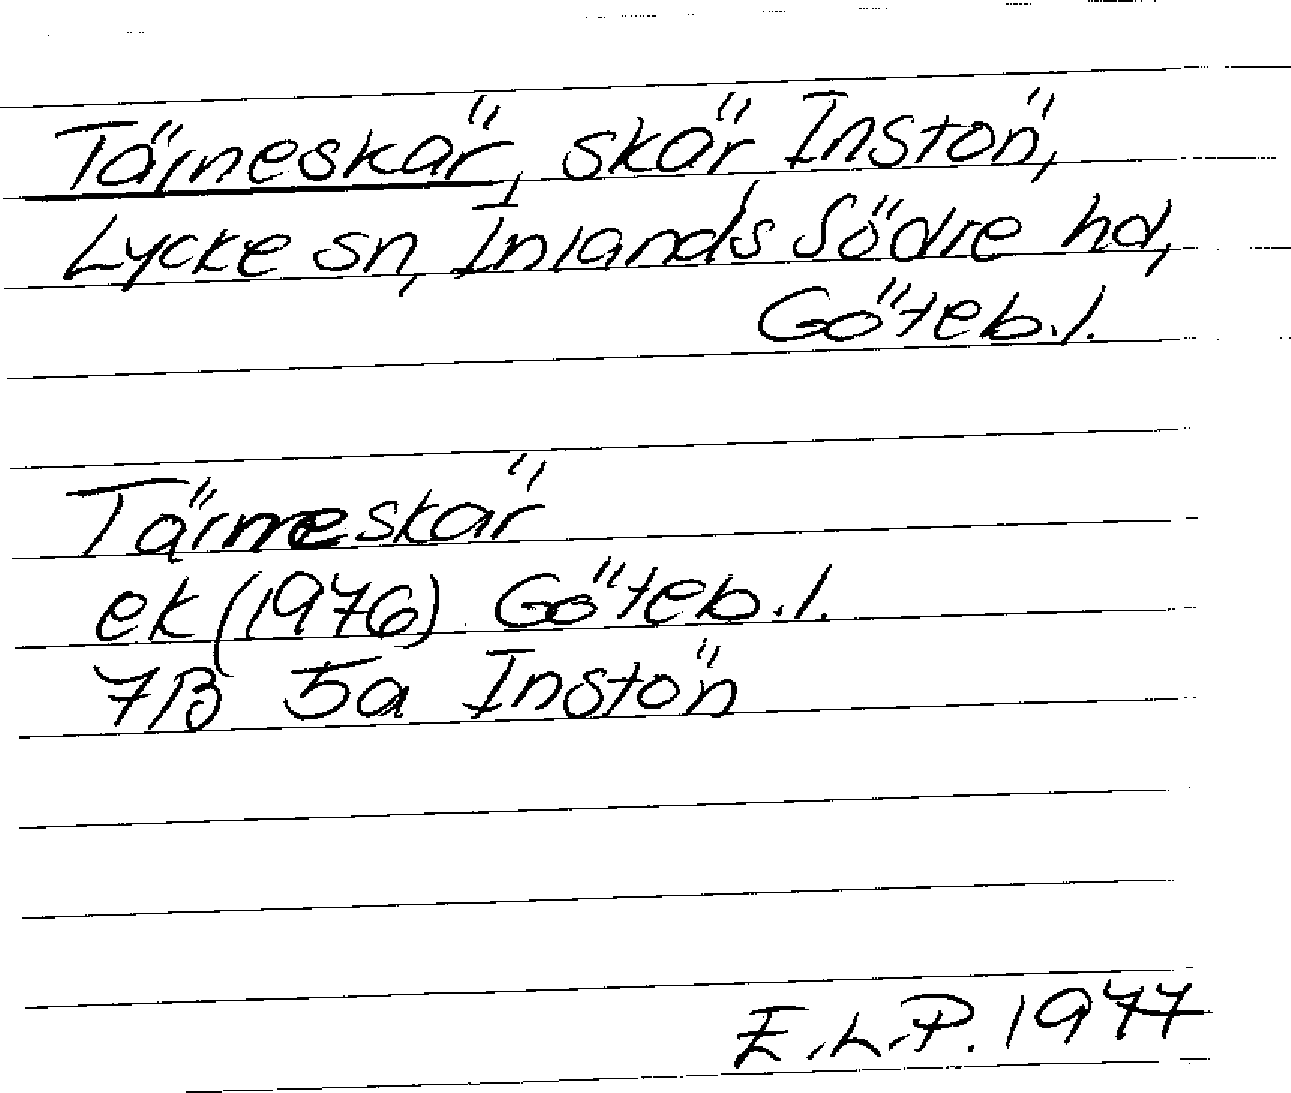 Tärneskär, skär Instön,
Lycke sn, Inlands Södre hd,
Göteb.l.
Tärneskär
ek (1976) Göteb.l.
7B 5a Instön
E.L.P. 1977